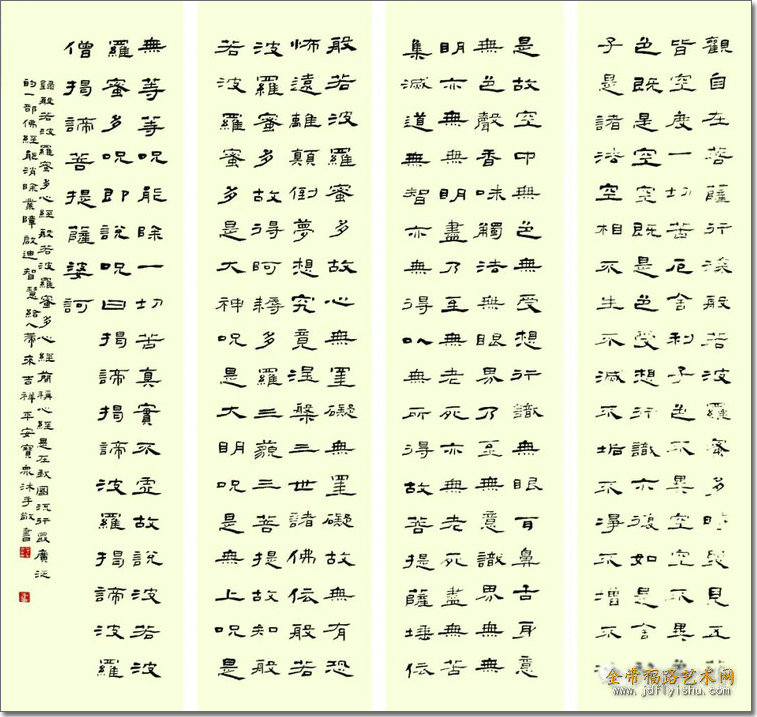 觀自在菩薩行深般若波羅蜜多時照見五蘊
皆空度一切苦厄舍利子色不異空空不異色
色既是空空既是色受想行識亦復如是舍
子是諸法空相不生不滅不垢不淨不增不
是故空中無色無受想行識無眼耳鼻舌身意
無色聲香味觸法無眼界乃至無意識界無無
明亦無無明盡乃至無老死亦無老死盡無苦
集滅道無智亦無得以無所得故菩提薩埵依
般若波羅蜜多故心無罣礙無罣礙故無有恐
怖遠離顛倒夢想究竟涅槃三世諸佛依般若
波羅蜜多故得阿耨多羅三藐三菩提故知般
若波羅蜜多是大神呪是大明呪是無上呪是
無等等呪能除一切苦真實不虛故說波若波
羅蜜多呪即說呪曰揭諦揭諦波羅揭諦波羅
僧揭諦菩提薩婆訶
錄般若波羅蜜多心經般若波羅蜜多心經簡稱心經是在我國流行最廣泛
的一部佛經能消除業障啟迪智慧給人帶來吉祥平安寶泉沐手敬書
金带福路艺术网
www.jdflyishu.com